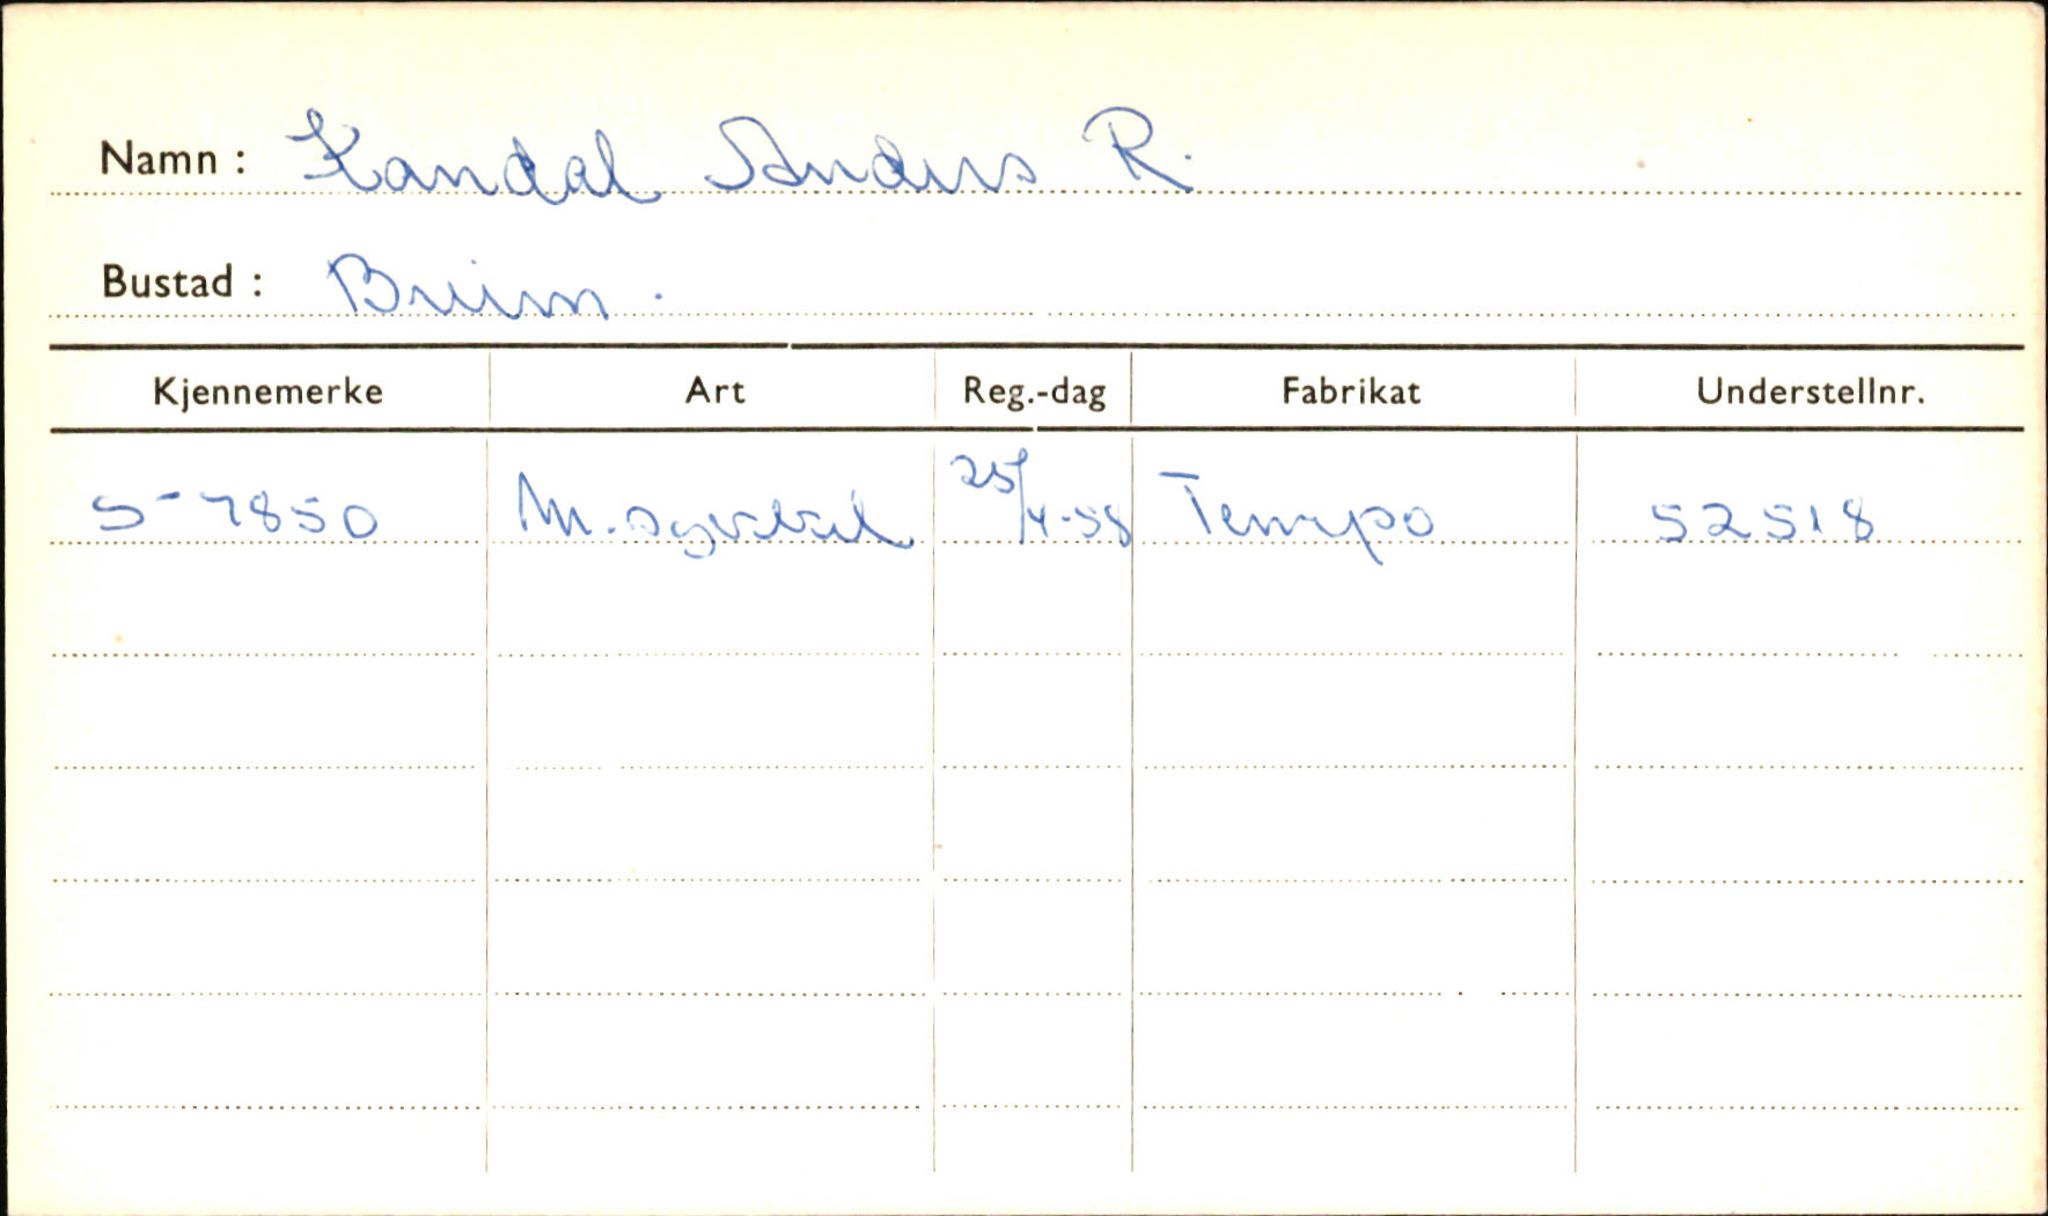 Namn : Kandal Anders R.
Bustad : Breim.
Kjennemerke Art Reg.-dag Fabrikat Understellnr.
S-7850 M.sykkel 25/4-58 Tempo 52518